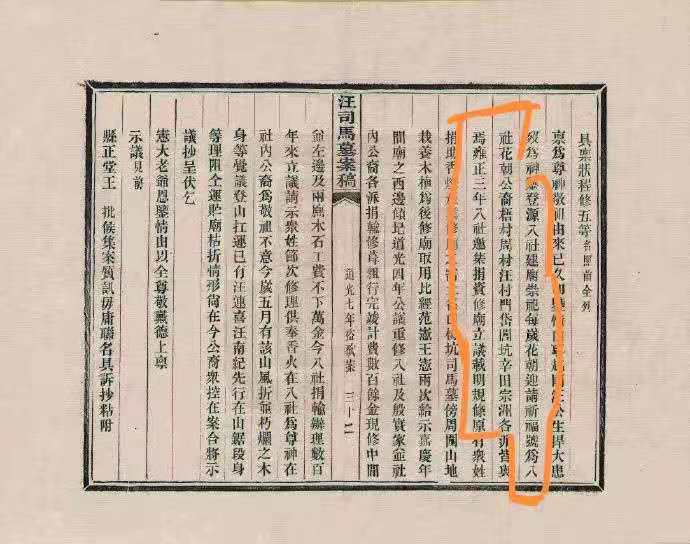 具禀狀程修五等名照前全列
禀為尊神敬祖由來已久越國汪公生捍大患
歿為神登源八社建廟崇祀每歲花朝迎請祈福號為八
社花朝公裔梧村周村汪村門岱閌坑辛田宗洲各派皆與
焉雍正三年八社邀集捐資修廟立議載明規條原有衆姓
捐助香坑司馬墓傍周圍山地
栽養木植為後修廟取用比經范憲王憲兩次給示嘉慶年
間廟之西邊傾圮道光四年公議重修八社及殷實家並社
內公裔各派捐輸修葺報行完竣計費數百餘金現修中間
汪司馬墓案稿
道光七年訟案 三十二
並左邊及兩廡木石工費不下萬金今八社捐輸辦理數百
年來立議請示衆姓節次修理供奉香火在八社為尊神在
社內公裔為敬祖不意今歲五月有該山風折並朽爛之木
身等覺議登山扛運已有汪連喜汪南紀先行在山鋸段身
等理阻全運貯廟枯折情形尚在今公裔衆控在案合將示
議抄呈伏乞
憲大老爺恩鑒情由以全尊敬戴德上禀
示議見前
縣正堂王 批候集案質訊毋庸聯名具訴抄粘附